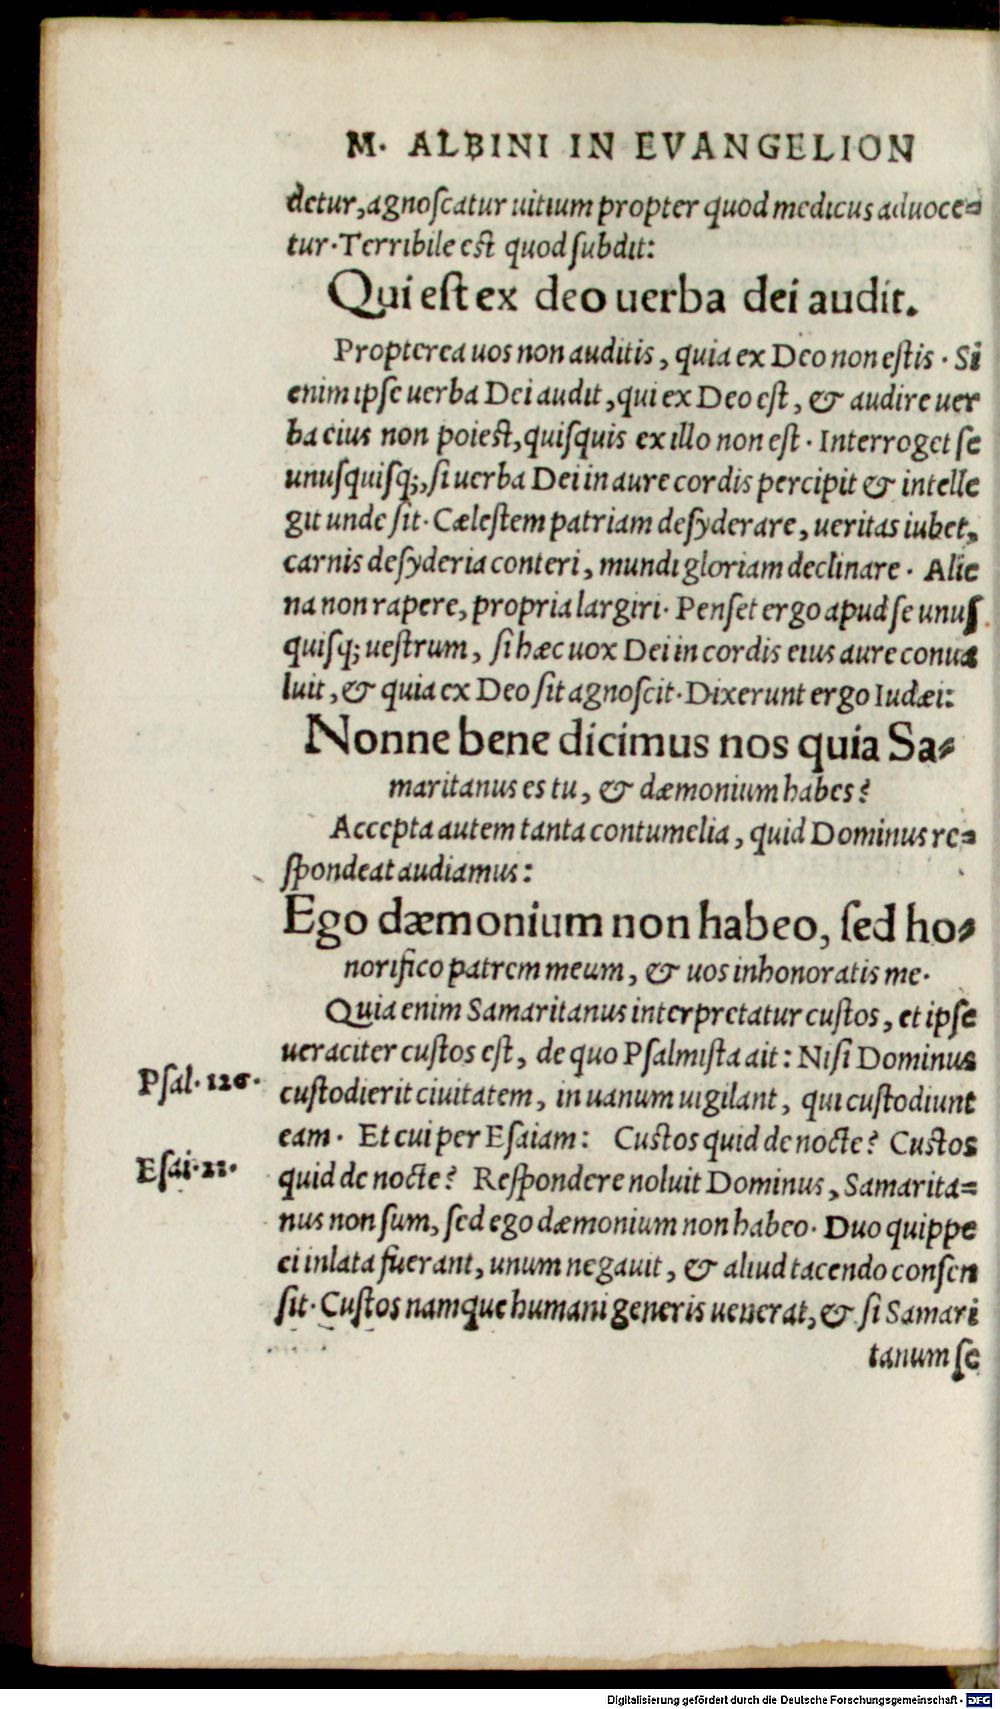 M. ALBINI IN EVANGELION
detur, agnoſcatur uitium propter quod medicus aduoce=
tur. Terribile eſt quod ſubdit:
Qui eſt ex deo uerba dei audit.
Propterea uos non auditis, quia ex Deo non eſtis. Si
enim ipſe uerba Dei audit, qui ex Deo eſt, & audire uer
ba eius non poteſt, quiſquis ex illo non eſt. Interroget ſe
unuſquiſq;, ſi uerba Dei in aure cordis percipit & intelle
git unde ſit. Cæleſtem patriam deſyderare, ueritas iubet,
carnis deſyderia conteri, mundi gloriam declinare. Alie
na non rapere, propria largiri. Penſet ergo apud ſe unuſ
quiſq; ueſtrum, ſi hæc uox Dei in cordis eius aure conua
luit, & quia ex Deo ſit agnoſcit. Dixerunt ergo Iudæi:
Nonne bene dicimus nos quia Sa=
maritanus es tu, & dæmonium habes?
Accepta autem tanta contumelia, quid Dominus re=
ſpondeat audiamus:
Ego dæmonium non habeo, ſed ho=
norifico patrem meum, & uos inhonoratis me.
Quia enim Samaritanus interpretatur cuſtos, et ipſe
ueraciter cuſtos eſt, de quo Pſalmiſta ait: Niſi Dominus
Pſal. 126.
cuſtodierit ciuitatem, in uanum uigilant, qui cuſtodiunt
eam. Et cui per Eſaiam: Cuſtos quid de nocte? Cuſtos
Eſai. 21.
quid de nocte? Reſpondere noluit Dominus, Samarita=
nus non ſum, ſed ego dæmonium non habeo. Duo quippe
ei inlata fuerant, unum negauit, & aliud tacendo conſen
ſit. Cuſtos namque humani generis uenerat, & ſi Samari
tanum ſe
Digitalisierung gefördert durch die Deutsche Forschungsgemeinschaft - DFG